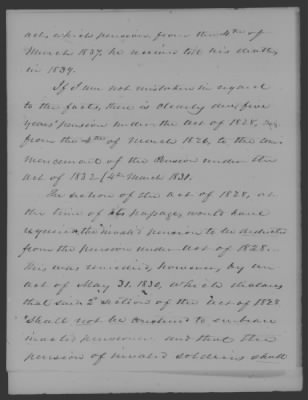 act, which pension, from the 4th of
March 1837, he received till his death,
in 1839.
If I am not mistaken in regard
to the facts, there is clearly due, five
years' pension under the act of 1828, say
from the 4th of March 1826, to the com-
mencement of the Pension under the
act of 1832 (4th March 1831.
The section of the act of 1828, at
the time of its passage, would have
required the invalid pension to be deducted
from the pension under act of 1828.
This was remedied, however, by an
act of May 31. 1830, which declares
that said 2d section of the Act of 1828
"shall not be construed to embrace
invalid pensioners and that the
pension of invalid soldiers shall